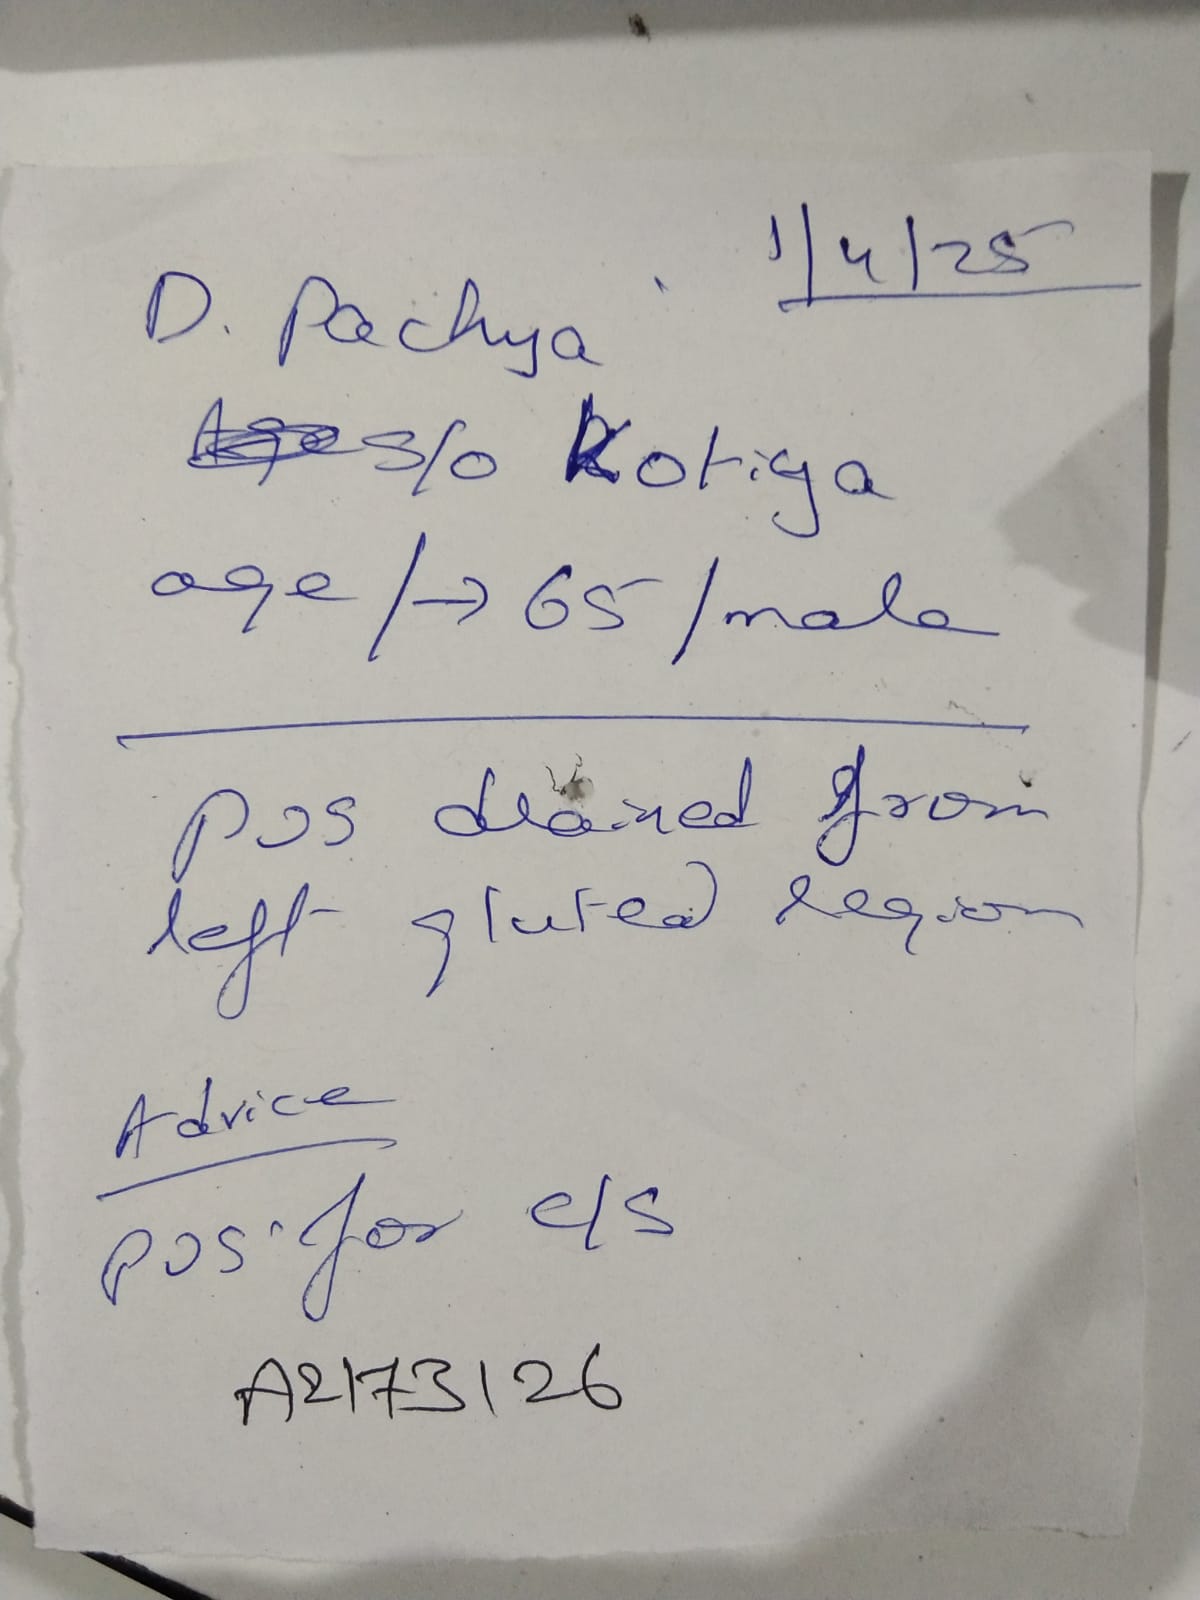 1/4/25
D. Pachya
s/o Kotiya
age/→ 65/male
pus drained from
left gluteal region
Advice
pus for c/s
A2173126